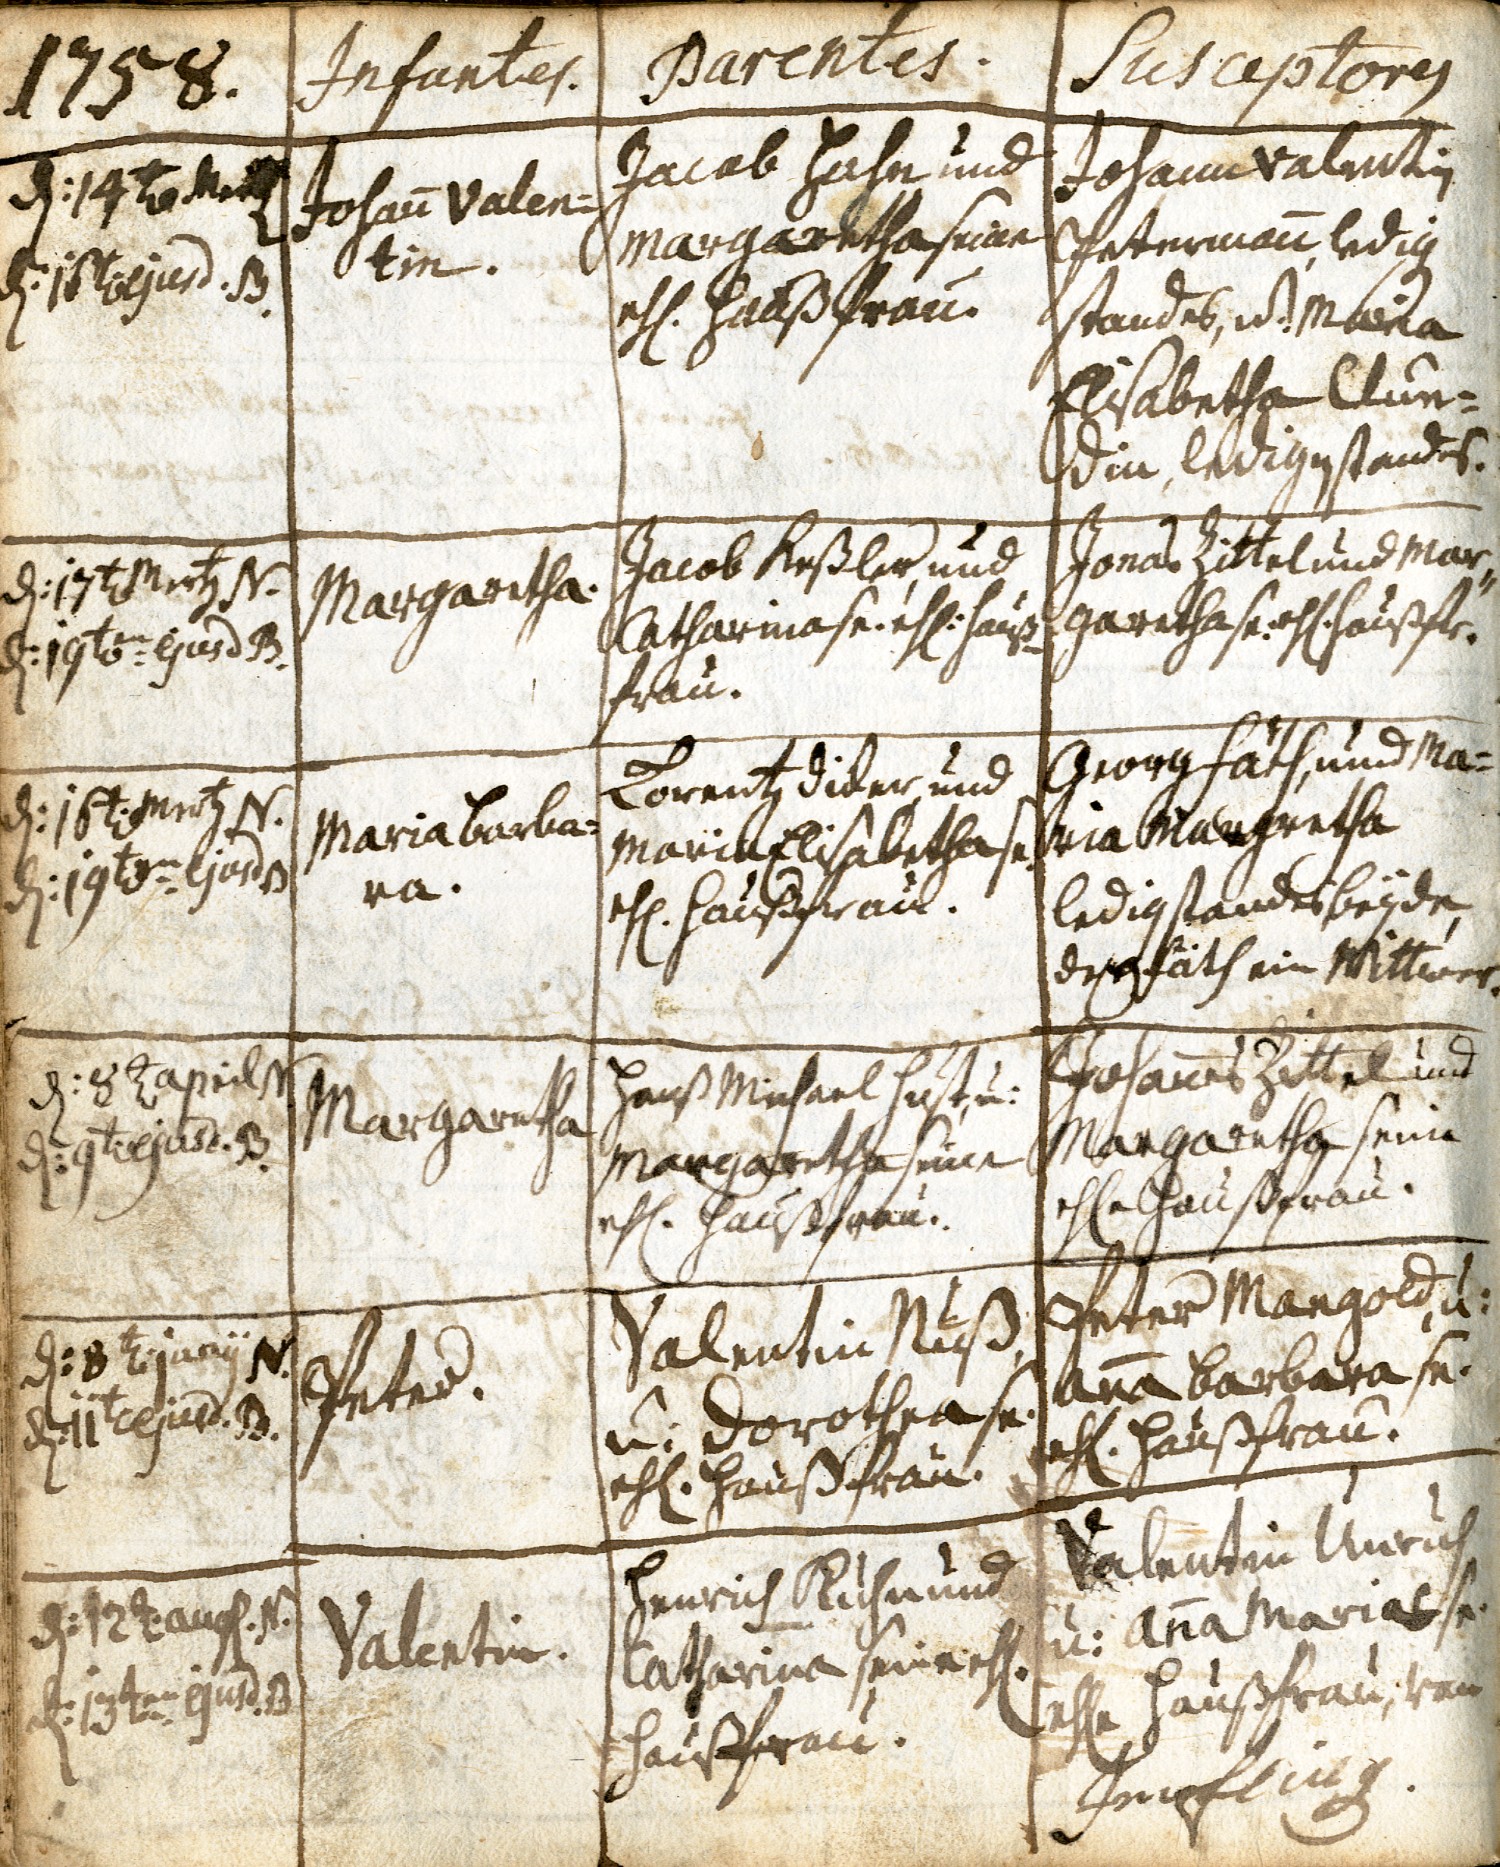 1758. Infantes. Parentes. Susceptores
d: 14t Mertz
d. 16t ejusd. B.
Johañ Valen=
tin.
Jacob Hahn und
Margaretha seine
ehl. Haußfrau.
Johann Valentin
Petermañ, ledig
standes, ud. Maria
Elisabetha
din, ledig standes.
d: 17t Mertz N.
d: 19ten ejusd B.
Margaretha.
Jacob Keßler, und
Catharina se. ehl: Hauß=
frau.
Jonas Zittel und Mar„
garetha se. ehl. Haußfr.
d: 16t Mertz N.
d: 19ten ejusd B
Maria Barba=
ra.
Lorentz und
Maria Elisabetha se.
ehl. Haußfrau.
Georg Fäth, und Ma=
ria Margretha
ledig standes beÿde,
der Fäth ein Wittwer.
d: 8t april N
d: 9t ejusd. B.
Margaretha
Hanß Michael u:
Margaretha seine
ehl. Haußfrau.
Johannes Zittel und
Margaretha seine
ehle Haußfrau.
d: 8t N.
d: 11t ejusd. B.
Peter.
Valentin Nuß,
u: Dorothea se.
ehl. Haußfrau.
Peter Mangold, u:
aña Barbara se.
ehl. Haußfrau.
d: 12t aug. N.
d: 13ten ejusd. B
Valentin.
Henrich Kuhn und
Catharina seine ehl.
Haußfrau.
Valentin Unruh
u: Aña Maria se.
ehle Haußfrau, von
Impfling.